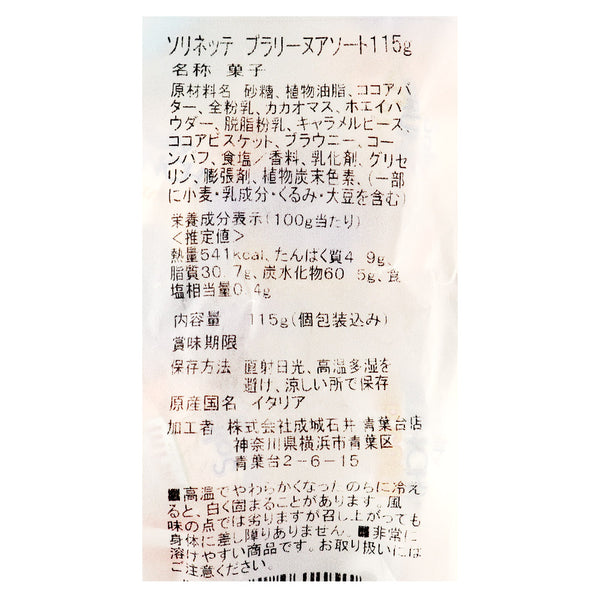 ソリネッテ プラリーヌアソート115g
名称 菓子
原材料名 砂糖、植物油脂、ココアバ
ター、全粉乳、カカオマス、ホエイパ
ウダー、脱脂粉乳、キャラメルピース、
ココアビスケット、ブラウニー、コー
ンパフ、食塩／香料、乳化剤、グリセ
リン、膨張剤、植物炭末色素、(一部
に小麦・乳成分・くるみ・大豆を含む)
栄養成分表示(100g当たり)
<推定値>
熱量541kcal、たんぱく質4.9g、
脂質30.7g、炭水化物60.5g、食
塩相当量0.4g
内容量 115g(個包装込み)
賞味期限
保存方法 直射日光、高温多湿を
避け、涼しい所で保存
原産国名 イタリア
加工者 株式会社成城石井 青葉台店
神奈川県横浜市青葉区
青葉台2-6-15
■高温でやわらかくなったのちに冷え
ると、白く固まることがあります。風
味の点では劣りますが召し上がっても
身体に差し障りありません。■非常に
溶けやすい商品です。お取り扱いには
ご注意ください。